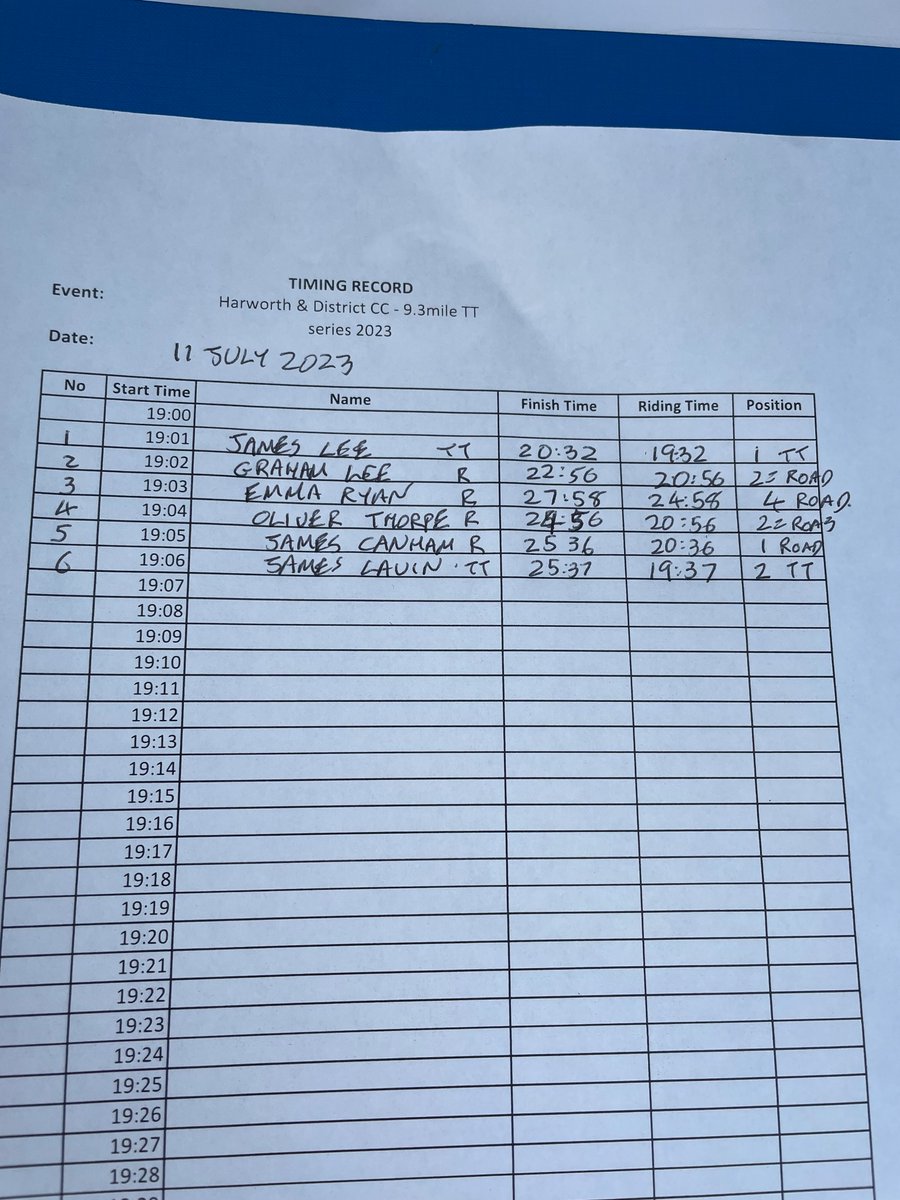 TIMING RECORD
Event: Harworth & District CC - 9.3mile TT
series 2023
Date: 11 JULY 2023
No Start Time Name Finish Time Riding Time Position
19:00
1 19:01 JAMES LEE TT 20:32 19:32 1 TT
2 19:02 GRAHAM LEE R 22:56 20:56 2= ROAD
3 19:03 EMMA RYAN R 27:58 24:58 4 ROAD.
4 19:04 OLIVER THORPE R 24:56 20:56 2= ROAD
5 19:05 JAMES CANHAM R 25 36 20:36 1 ROAD
6 19:06 JAMES LAVIN . TT 25:37 19:37 2 TT
19:07
19:08
19:09
19:10
19:11
19:12
19:13
19:14
19:15
19:16
19:17
19:18
19:19
19:20
19:21
19:22
19:23
19:24
19:25
19:26
19:27
19:28